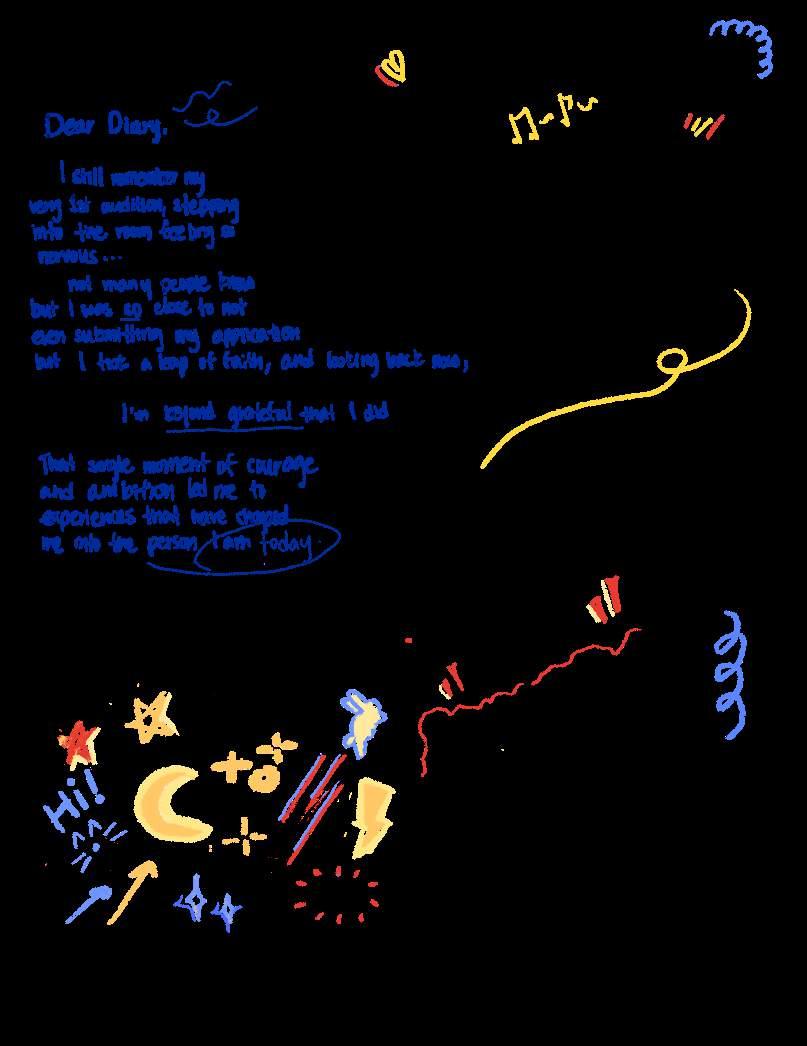 Dear Diary,
I still remember my
very 1st audition, stepping
into the room feeling so
nervous...
not many people know
but I was so close to not
even submitting my application
but I took a leap of faith, and looking back now,
I'm beyond grateful that I did
That single moment of courage
and ambition led me to
experiences that have shaped
me into the person I am today.
Hi!